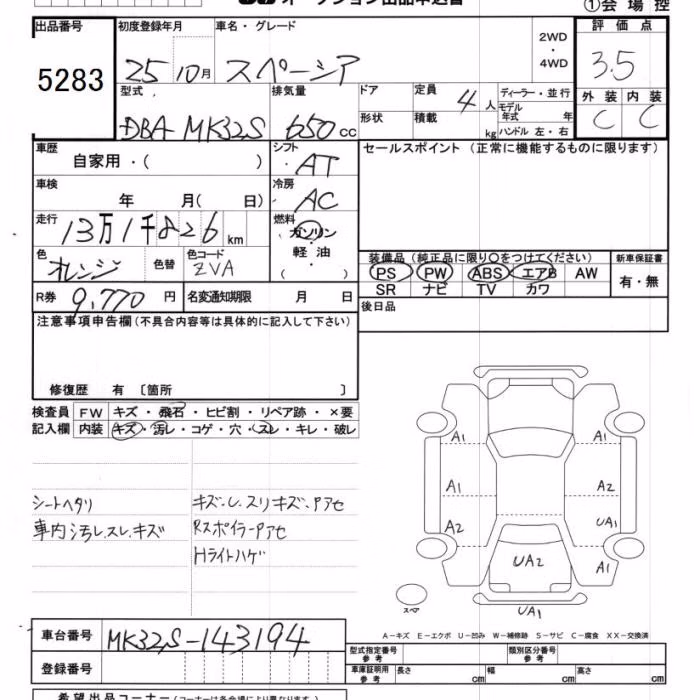 オークション出品申込書
①会場控
出品番号 初度登録年月 車名・グレード 2WD ・ 4WD 評価点
5283 25 10月 スペーシア 3.5
型式 排気量 ドア 定員 4人 ディーラー・並行 外装 内装
DBA MK32S 650cc 形状 積載 kg モデル年式 年 C C
ハンドル 左・右
車歴 自家用・( ) シフト AT セールスポイント(正常に機能するものに限ります)
車検 年 月( 日) 冷房 AC
走行 13万1千826km 燃料 ガソリン
軽油
・( )
色 オレンジ 色替 色コード ZVA
装備品(純正品に限り○をつけてください) 新車保証書
PS PW ABS エアB AW 有・無
SR ナビ TV カワ
R券 9,770円 名変通知期限 月 日 後日品
注意事項申告欄(不具合内容等は具体的に記入して下さい)
修復歴 有 〔箇所 〕
検査員 FW キズ・飛石・ヒビ割・リペア跡・×要
記入欄 内装 キズ・汚レ・コゲ・穴・スレ・キレ・破レ
シートヘタリ キズ.U.スリキズ.Pアセ
車内汚レ.スレ.キズ RスポイラーPアセ
Hライトハゲ
A1 A1
A1 A2
A2 UA1
UA2 A1
スペア UA1
A-キズ E-エクボ U-凹み W-補修跡 S-サビ C-腐食 XX-交換済
車台番号 MK32S-143194
型式指定番号 参考 類別区分番号 参考
登録番号 車庫証明用 参考 長さ cm 幅 cm 高さ cm
希望出品コーナー(コーナーは各会場により異なります)